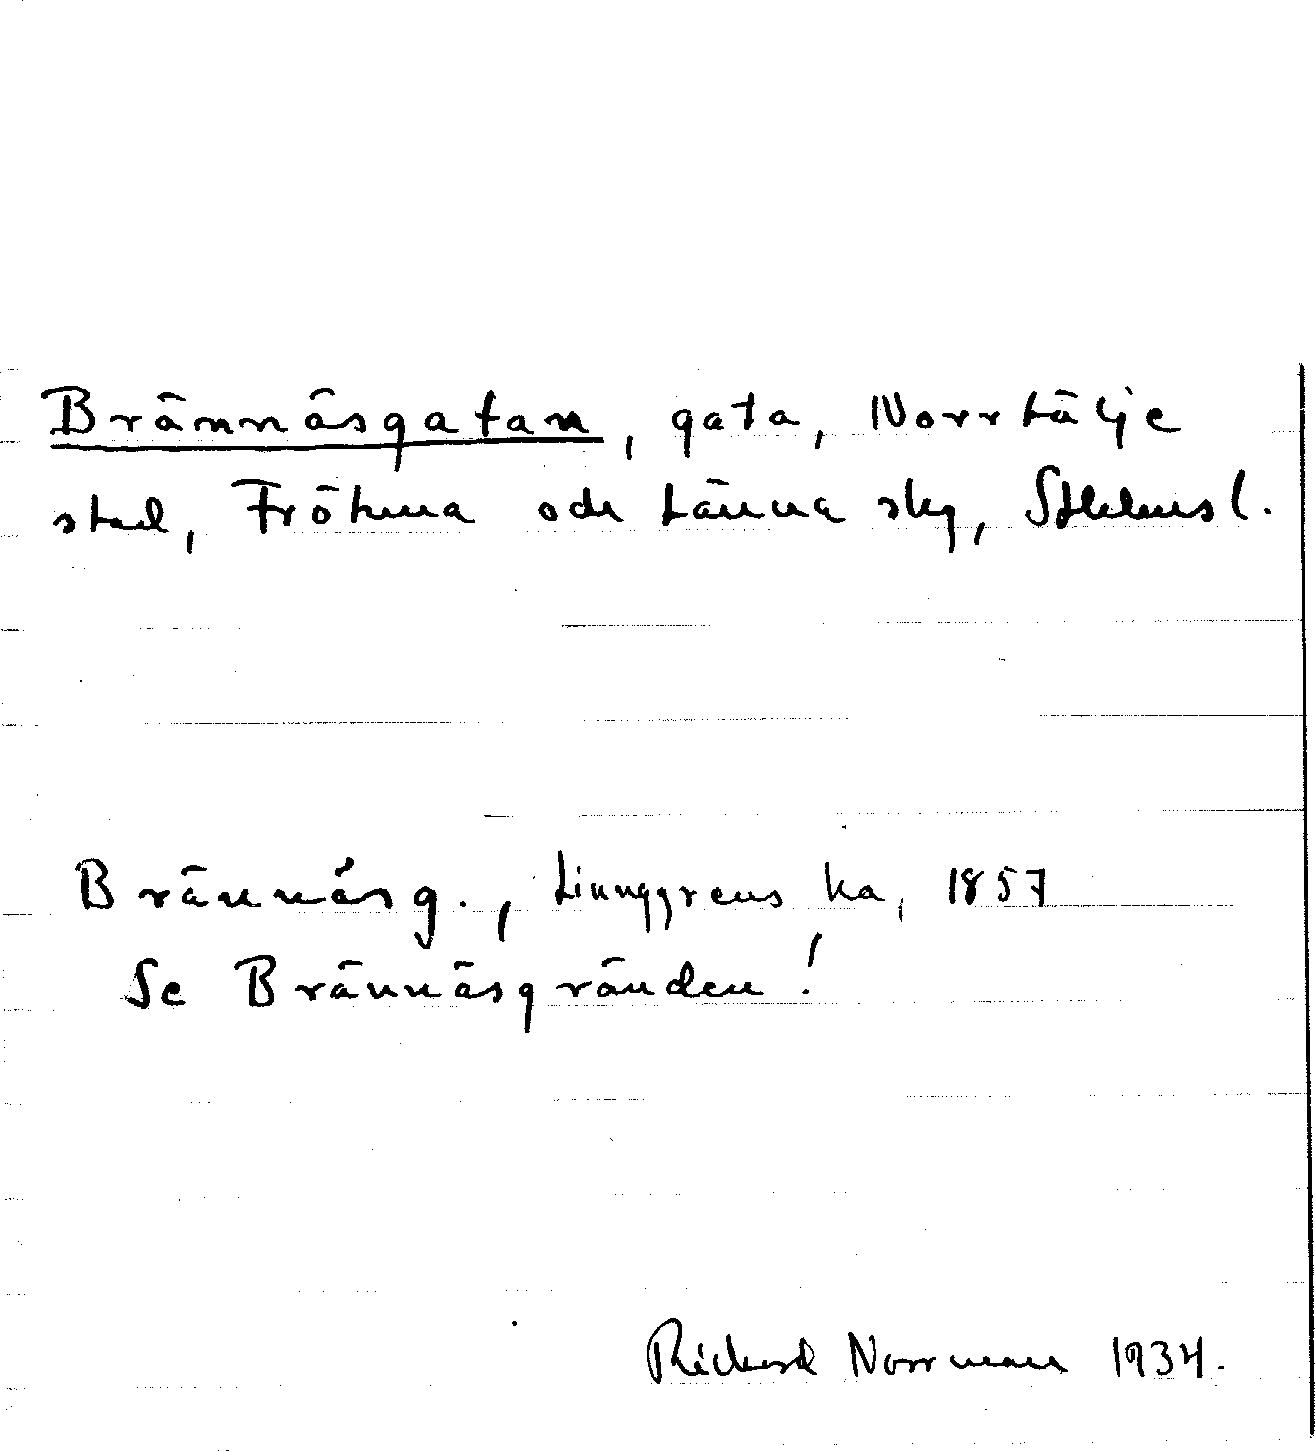 Brännäsgatan, gata, Norrtälje
stad, Frötuna och Länna sky, Sthlms l.
Brännäsg., Ljunggrens ka, 1857
Se Brännäsgränden!
Richard Norrman 1934.